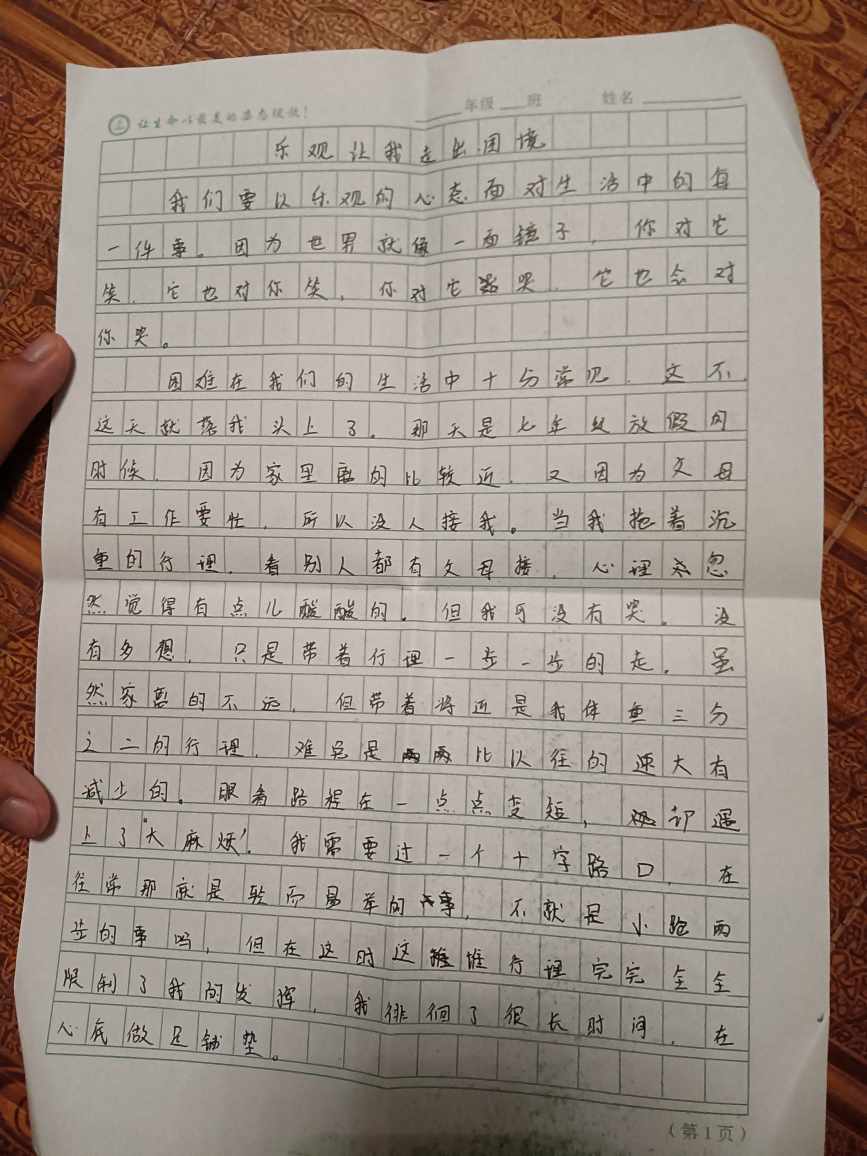 让生命以最美的姿态绽放! 年级 班 姓名
乐观让我走出困境
我们要以乐观的心态面对生活中的每
一件事。因为世界就像一面镜子,你对它
笑,它也对你笑,你对它哭,它也会对
你哭。
困难在我们的生活中十分常见,这不,
这天就落我头上了。那天是七年级放假的
时候,因为家里离的比较近,又因为父母
有工作要忙,所以没人接我。当我拖着沉
重的行理,看别人都有父母接,心理忽
然觉得有点儿酸酸的。但我可没有哭。没
有多想,只是带着行理一步一步的走,虽
然家离的不远,但带着将近是我体重三分
之二的行理,难免是比以往的速大有
减少的。眼看路程在一点点变短,却遇
上了"大麻烦",我需要过一个十字路口,在
往常那就是轻而易举的事,不就是小跑两
步的事吗,但在这时这堆行理完完全全
限制了我的发挥,我徘徊了很长时间,在
心底做足铺垫。
(第1页)